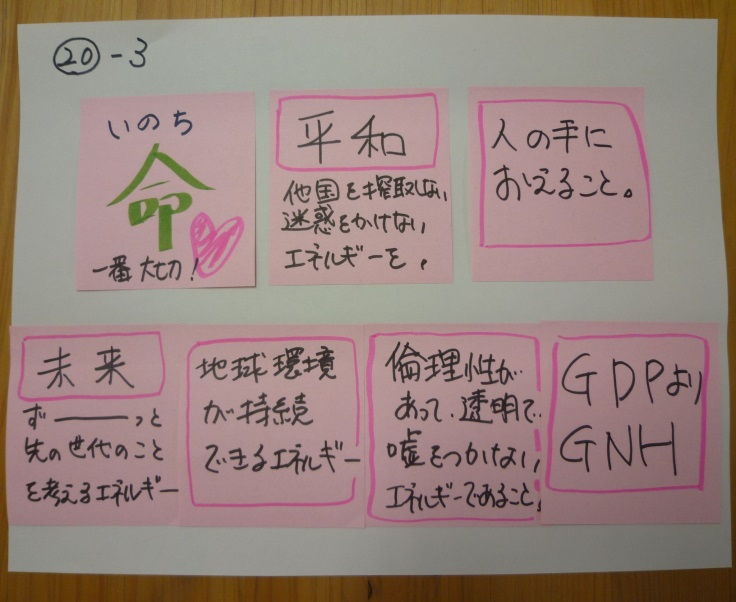 ⑳-3
いのち
命
一番大切!
平和
他国を搾取しない
迷惑をかけない
エネルギーを。
人の手に
おえること。
未来
ずーーっと
先の世代のこと
を考えるエネルギー
地球環境
が持続
できるエネルギー
倫理性が
あって、透明で
嘘をつかない
エネルギーであること。
GDPより
GNH